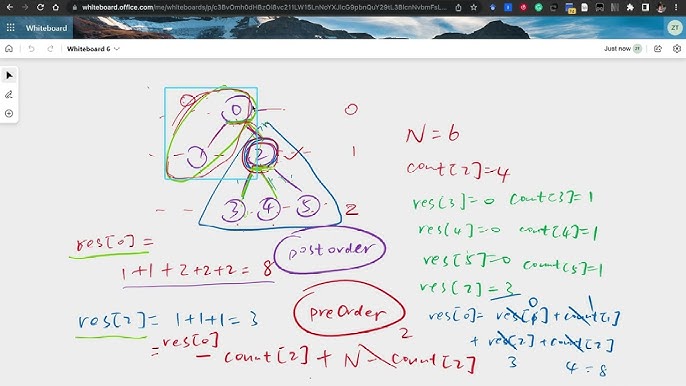 whiteboard.office.com/me/whiteboards/p/c3BvOmh0dHBzOi8vc211LW15LnNoYXJlcG9pbnQuY29tL3BlcnNvbmFsL...
Whiteboard
ZT
Whiteboard 6
Just now
ZT
0
0
1
2
1
3
4
5
2
N = 6
count[2]=4
res[3]=0 count[3]=1
res[4]=0 count[4]=1
res[5]=0 count[5]=1
res[2]=3
res[0]=
postorder
1+1+2+2+2=8
preOrder
res[2]= 1+1+1=3
= res[0] - count[2] + N - count[2]
2
0
1
res[0]= res[1]+count[1]
+ res[2]+count[2]
3
4 = 8